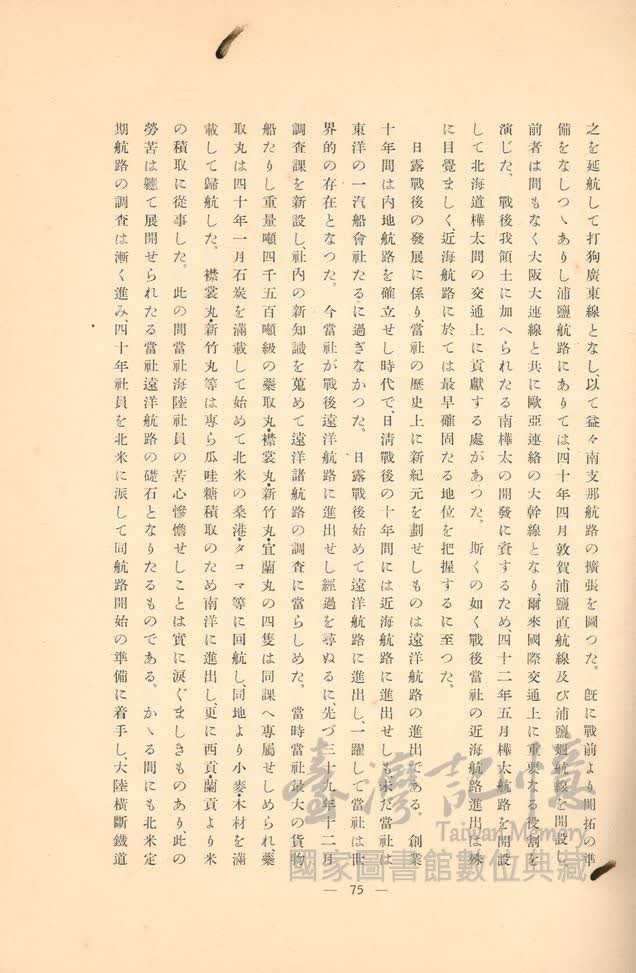 之を延航して打狗廣東線となし、以て益々南支那航路の擴張を圖つた。　旣に戰前より開拓の準
備をなしつゝありし浦鹽航路にありては、四十年四月敦賀浦鹽直航線及び浦鹽廻航線を開設し、
前者は間もなく大阪大連線と共に歐亞連絡の大幹線となり、爾來國際交通上に重要なる役割を
演じた。　戰後我領土に加へられたる南樺太の開發に資するため四十二年五月樺太航路を開設
して北海道樺太間の交通上に貢獻する處があつた。　斯くの如く戰後當社の近海航路進出は殊
に目覺ましく、近海航路に於ては最早確固たる地位を把握するに至つた。
　日露戰後の發展に係り、當社の歷史上に新紀元を劃せしものは遠洋航路の進出である。　創業
十年間は內地航路を確立せし時代で、日淸戰後の十年間には近海航路に進出せしも未だ當社は
東洋の一汽船會社たるに過ぎなかつた。　日露戰後始めて遠洋航路に進出し、一躍して當社は世
界的の存在となつた。　今當社が戰後遠洋航路に進出せし經過を尋ぬるに、先づ三十九年十二月
調查課を新設し、社內の新知識を蒐めて遠洋諸航路の調查に當らしめた。　當時當社最大の貨物
船たりし重量噸四千五百噸級の藥取丸・襟裳丸・新竹丸・宜蘭丸の四隻は同課へ專屬せしめられ、藥
取丸は四十年一月石炭を滿載して始めて北米の桑港・タコマ等に回航し、同地より小麥・木材を滿
載して歸航した。　襟裳丸・新竹丸等は專ら瓜哇糖積取のため南洋に進出し、更に西貢蘭貢より米
の積取に從事した。　此の間當社海陸社員の苦心慘憺せしことは實に淚ぐましきものあり、此の
勞苦は軈て展開せられたる當社遠洋航路の礎石となりたるものである。　かゝる間にも北米定
期航路の調查は漸く進み、四十年社員を北米に派して同航路開始の準備に着手し、大陸橫斷鐵道
— 75 —
臺灣記憶
Taiwan Memory
國家圖書館數位典藏